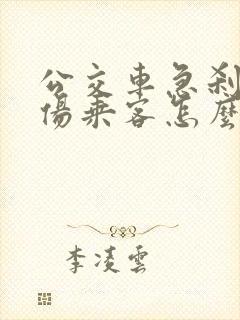 公交車急刹
傷乘客怎麼
李凌雲